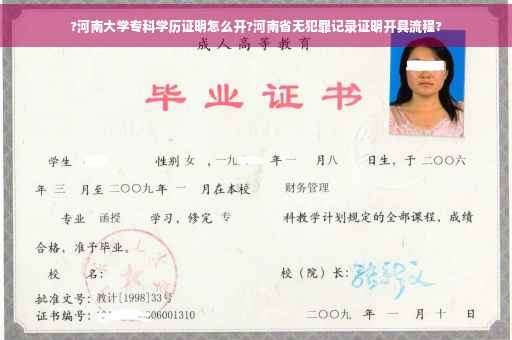 ?河南大学专科学历证明怎么开?河南省无犯罪记录证明开具流程?
成人高等教育
毕业证书
学生 性别 女 ，一九 年 一 月八 日生，于 二〇〇六
年 三 月至 二〇〇九 年 一 月在本校 财务管理
专业 函授 学习，修完 专 科教学计划规定的全部课程，成绩
合格，准予毕业。
校 名： 校（院）长：
批准文号：教计[1998]33号
证书编号： 06001310 二〇〇九 年 一 月 十 日